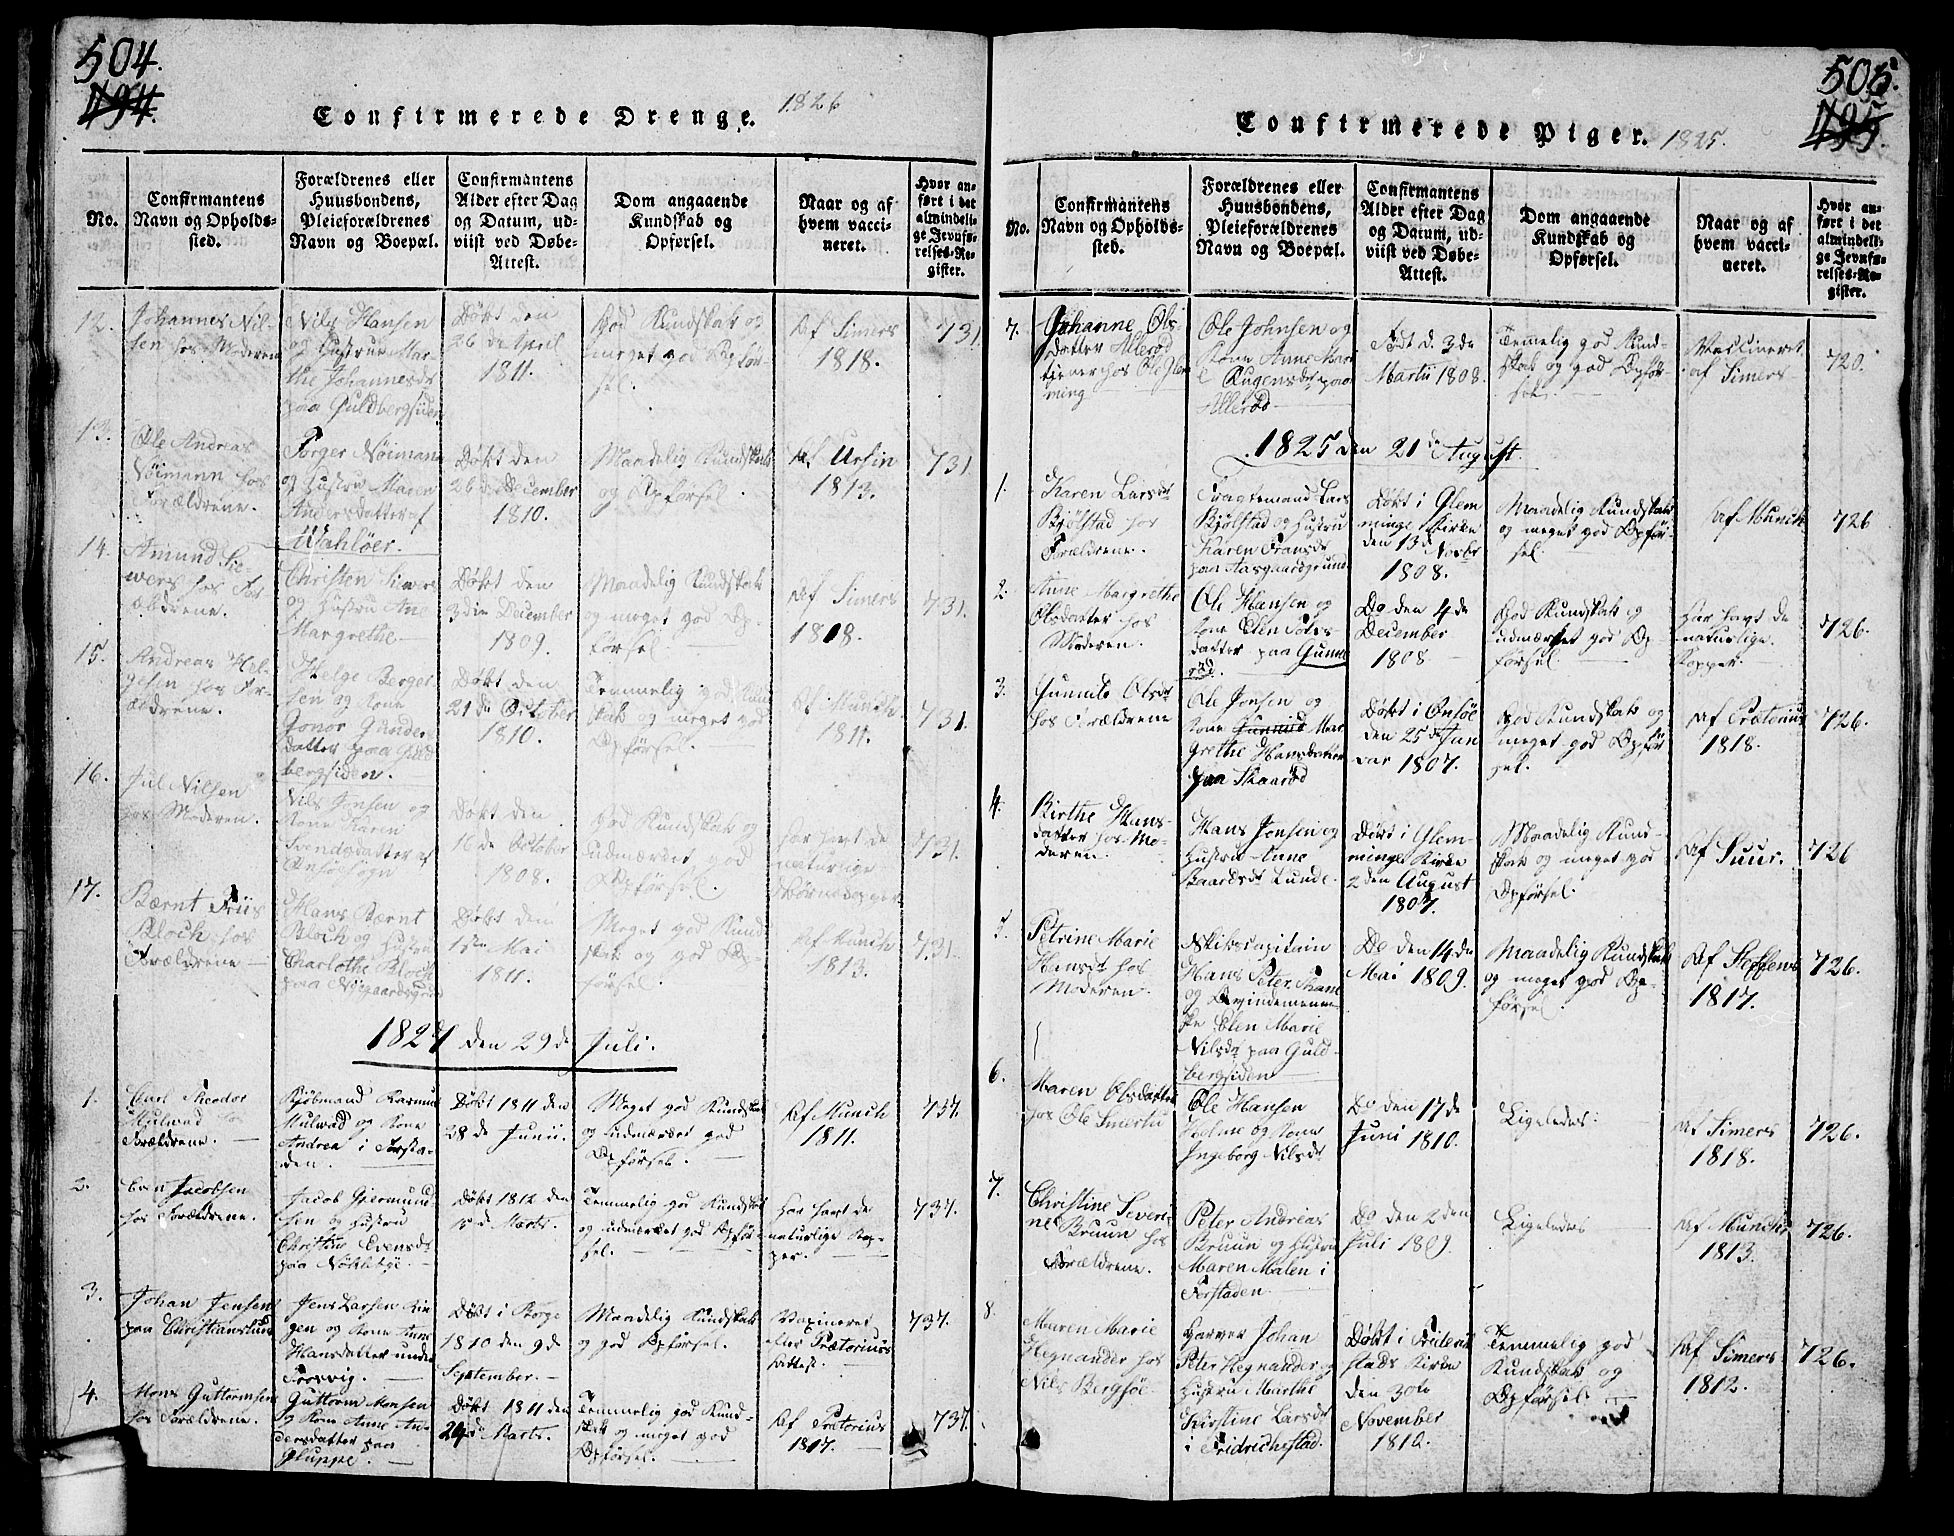 504.
494.
Confirmerede Drenge. 1826
No.
Confirmantens
Navn og Opholds-
sted.
Forældrenes eller
Huusbondens,
Pleieforældrenes
Navn og Boepæl.
Confirmantens
Alder efter Dag
og Datum, ud-
viist ved Døbe-
Attest.
Dom angaaende
Kundskab og
Opførsel.
Naar og af
hvem vacci-
neret.
Hvor an-
ført i det
almindeli-
ge Jevnfø-
relses-Re-
gister.
12.
Johannes Nil-
sen hos Moderen
Nils Hansen
og Hustrue Mar-
the Johannesdr
paa Guldbergsiden
Døbt den
26 de April
1811.
God Kundskab og
meget god Opfør-
sel.
Af Simers
1818.
731.
13.
Ole Andreas
Nøimann hos
Forældrene.
Torger Nøimann
og Hustru Maren
Andersdatter af
Wahløer.
Døbt den
26 de December
1810.
Maadelig Kundskab
og Opførsel.
Af Ursin
1813.
731
14.
Amund Sie-
wers hos For-
ældrene.
Christen Siwers
og Hustru Ane
Margrethe
Døbt den
3die December
1809.
Maadelig Kundskab
og meget god Op-
førsel
Af Simers
1818.
731.
15.
Andreas Hel-
gesen hos For-
ældrene.
Helge Berger-
sen og Kone
Gonor Gunder-
datter paa Guld-
bergsiden.
Døbt den
21 de October
1810.
Temmelig god Kund-
skab og meget god
Opførsel.
Af Munch
1811.
731.
16.
Jul Nilsen
hos Moderen.
Nils Jensen og
Kone Karen
Svendsdatter af
Onsøe Sogn
Døbt den
16 de October
1808.
God Kundskab og
udmærket god
Opførsel.
har havt de
naturlige
Børnekopper
731.
17.
Bærnt Friis
Bloch hos
Forældrene
Hans Bærnt
Bloch og Hustru
Charlothe Bloch
paa Nygaardsgrund
Døbt den
Mai
1811.
Meget god Kund-
skab og god Op-
førsel.
Af Munch
1813.
731.
1827 den 29 de Juli.
1.
Carl Theodor
Hulwad
Forældrene.
Kjøbmand Rasmus
Hulwad og Kone
Andrea i Forsta-
den.
Døbt 1811 den
28 de Junii.
Meget god Kundskab
og udmærket god
Opførsel.
Af Munch
1811.
737.
2.
Even Jacobsen
hos Forældrene.
Jacob Giermund-
sen og Hustru
Christine Evensdr
paa Nøkleby.
Døbt 1812 den
d. Marts.
Temmelig god Kundskab
og udmærket god Opfør-
sel.
Har havt de
naturlige Kop-
per.
737.
3.
Johan Jensen
paa Christianslund
Jens Larsen Rin-
gen og Kone Anne
Hansdatter under
Torsvig.
Døbt i Borge
1810 den 9 de
September.
Maadelig Kundskab
og god Opførsel.
Vaxineret
efter Prætorius
Attest.
737.
4.
Mons Guttormsen
hos Forældrene.
Guttorm Monsen
og Kone Anne An-
dersdatter paa
Gluppe.
Døbt 1811 den
24 de Marts.
Temmelig god Kund-
skab og meget god
Opførsel.
Af Prætorius
1817.
737.
505.
495.
Confirmerede Piger. 1825.
No.
Confirmantens
Navn og Opholds-
sted.
Forældrenes eller
Huusbondens,
Pleieforældrenes
Navn og Boepæl.
Confirmantens
Alder efter Dag
og Datum, ud-
viist ved Døbe-
Attest.
Dom angaaende
Kundskab og
Opførsel.
Naar og af
hvem vacci-
neret.
Hvor an-
ført i det
almindeli-
ge Jevnfø-
relses-Re-
gister.
7.
Johanne Ols-
datter Allerød
tiener hos Ole Glem-
ming
Ole Johnsen og
Kone Anne Mari
Eugensdr paa
Allerød
Født d. 3 de
Martii 1808.
Temelig god Kund-
skab og god Opfør-
sel.
Vaccineret
af Simers
720.
1825 den 21 de August.
1.
Karen Larsdr
Bjølstad hos
Forældrene.
Fragtemand Lars
Bjølstad og Hustru
Karen Fransdr
paa Aasgaardsgrund
Døbt i Glem-
minge Kirke
den 13 de Novbr
1808.
Maadelig Kundskab
og meget god Opfør-
sel.
Af Munch
726
2.
Anne Margrethe
Olsdatter hos
Moderen.
Ole Hansen og
Kone Elen Pders-
datter paa Gunne-
rød.
Do den 4 de
December
1808
God Kundskab og
udmærket god Op-
førsel.
Har havt de
naturlige
Kopper.
726.
3.
Gunnild Olsdr
hos Forældrene
Ole Jonsen og
Kone Gunnild Mar-
grethe Hansdatter
paa Skaarød
Døbt i Onsøe
den 25 de Jan
uar 1807.
God Kundskab og
meget god Opfør-
sel.
Af Prætorius
1818.
726.
4.
Birthe Hans-
datter hos Mo-
deren.
Hans Jensen og
Hustru Anne
Baardsdr Lunde.
Døbt i Glem-
minge Kirke
2 den August
1807.
Maadelig Kund-
skab og meget god
Opførsel.
Af Suur.
726
5.
Petrine Marie
Hansdr hos
Moderen.
Skibscapitain
Hans Peter Thane
og Qvindemenne-
ske Elen Marie
Nilsdr paa Guld-
bergsiden
Do den 14 de
Mai 1809.
Maadelig Kundskab
og meget god Op-
førsel.
Af Steffens
1817.
726.
6.
Maren Olsdatter
hos Ole Smertu
Ole Hansen
Holme og Kone
Ingeborg Nilsdr
Do den 17 de
Juni 1810.
Ligeledes
Af Simers
1818.
726.
7.
Christine Severi-
ne Bruun hos
Forældrene.
Peter Andreas
Bruun og Hustru
Maren Malen i
Forstaden
Do den 2 den
Juli 1809.
Ligeledes
Af Munch
1813.
726.
8.
Maren Marie
Hegnander hos
Nils Bergsøe.
Farver Johan
Peter Hegnander og
Hustru Marthe
Kirstine Larsdr
i Fridrichstad.
Døbt i Friderich-
stads Kirke
den 30 te
November
1810.
Temmelig god
Kundskab og
Opførsel.
Af Simers
1812.
726.